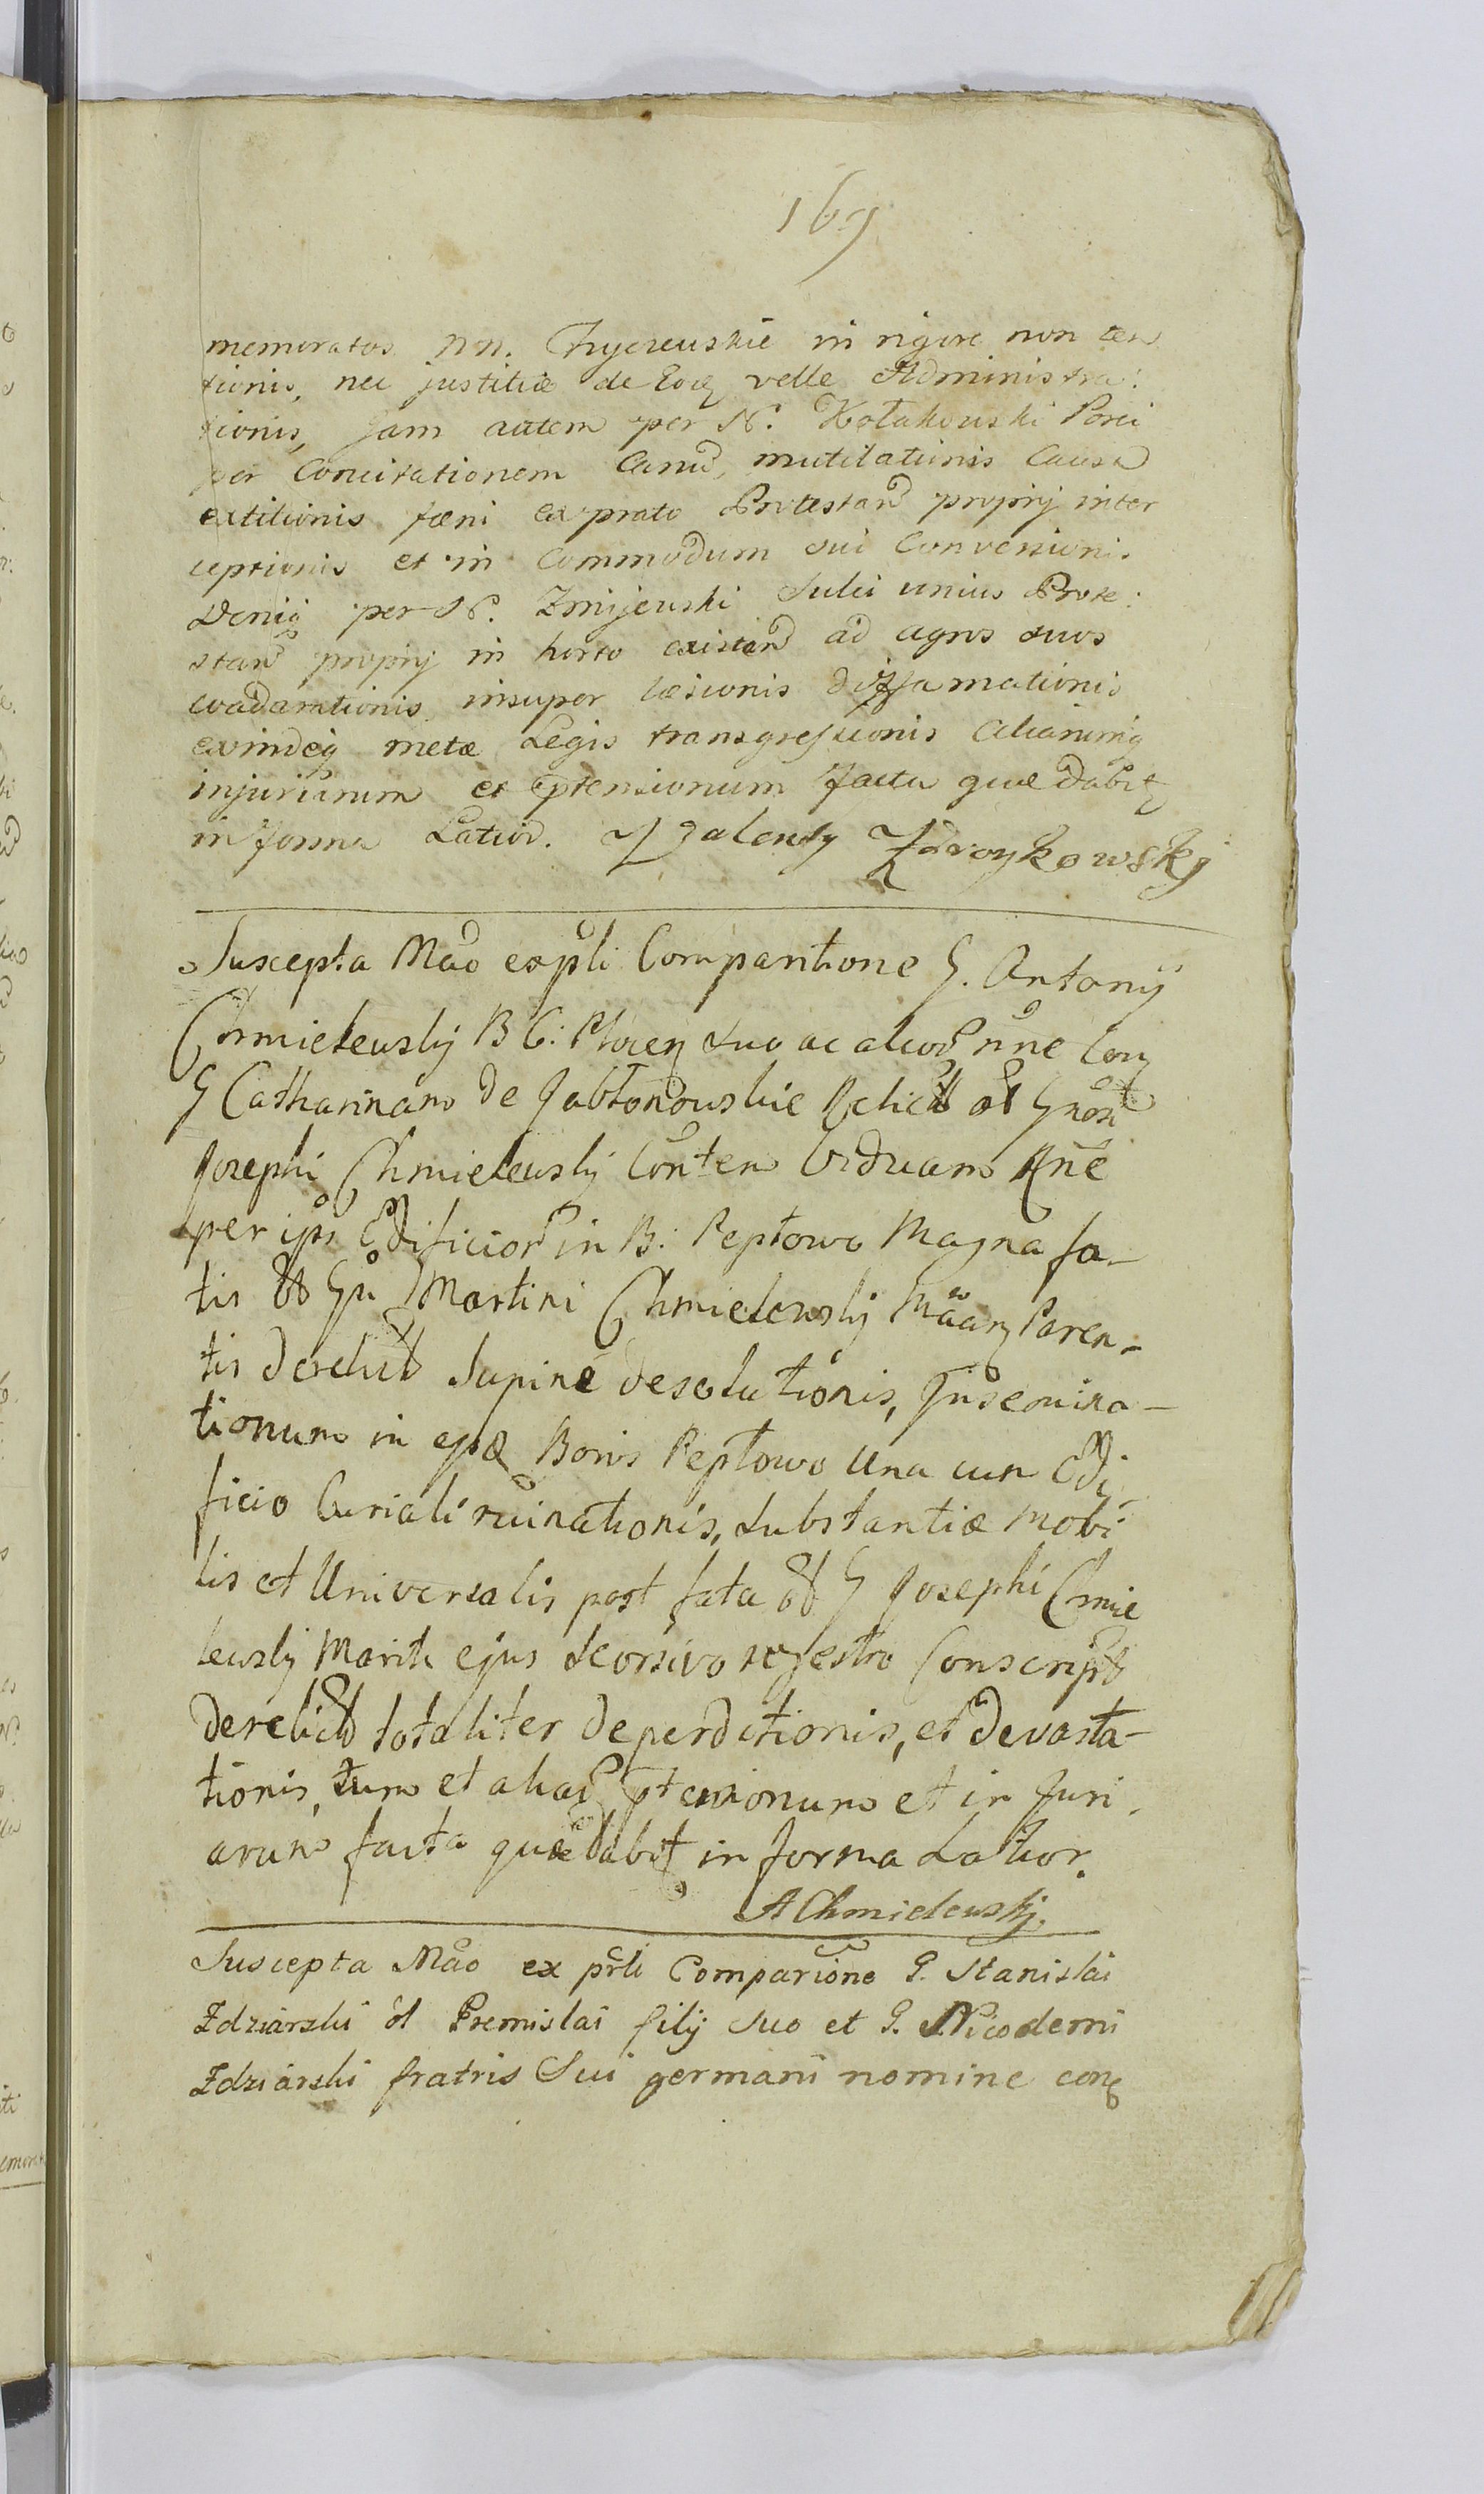 167
memoratos nn. Chyczewskie in rigore non ten
tionis, nec justitiæ de Eoq velle Administra:
tionis, Jam autem per N. Kołakowski Porci
per Concitationem Canũ, mutilationis Causa
extitionis fæni ex prato Protestan propry inter
ceptionis et in Commodum sui Conversionis
Deniq per N. Zmijewski Sulci unius Prote:
stan propry in horto existen ad agros suos
evadarationis insuper læsionis diffamationis
exindeq metæ Legis transgressionis Aliarumq
injuriarum et ptensionum facta quæ dabit
in forma Latior. Walenty Zdroykowsky
Suscepta Mão expli Comparitione G. Antonij
Chmielewsky B C: Plocen suo ac alior nne Con
G Catharinam de Jabłonowskie Relict ol Gnosi
Josephi Chmielewsky Conten Viduam Rne
per ips Edificior in B: Pepłowo Magna fa-
tis ol Gn Martini Chmielewsky Paren-
tis derelict Supine desolutionis, Insemina-
tionum in eisd Bonis Pepłowo Una cum Edi
ficio Curiali ruinationis, Substantiæ Mobi
lis et Universalis post fata ol G Josephi Chmie
lewsky Mariti ejus seorsivo regestro Conscript
derelict totaliter deperditionis, et devasta-
tionis, tum et aliar ptensionum et in Juri
arum facta quæ dabit in forma Latior.
AChmielewskj.
Suscepta Mão ex prli Comparione G. Stanislai
Zdziarski ol Premislai filij Suo et G. Nicodemi
Zdziarski fratris Sui germani nomine conq